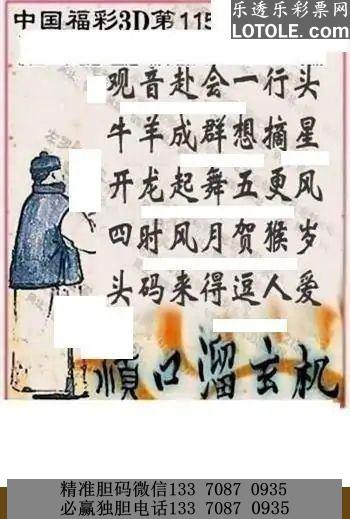 乐透乐彩票网
LOTOLE.COM
中国福彩3D第115
观音赴会一行头
牛羊成群想摘星
开龙起舞五更风
四时风月贺猴岁
头码来得逗人爱
顺口溜玄机
精准胆码微信133 7087 0935
必赢独胆电话133 7087 0935